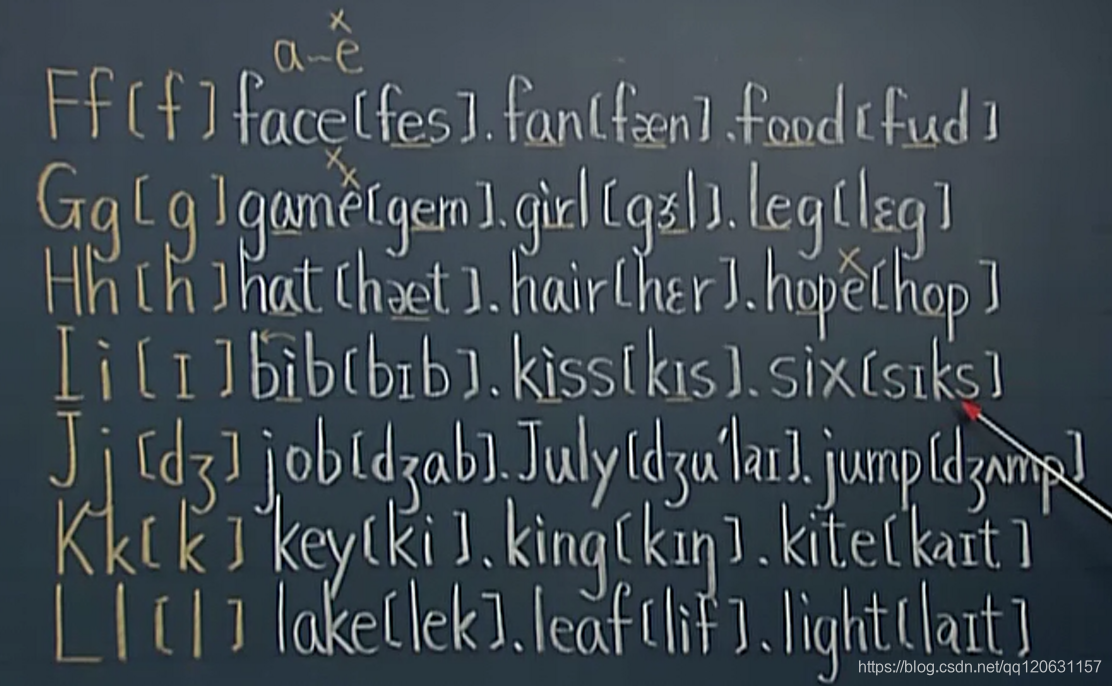 a-e
Ff [f] face [fes]. fan [fæn]. food [fud]
Gg [g] game [gem]. girl [gɝl]. leg [lɛg]
Hh [h] hat [hæt]. hair [hɛr]. hope [hop]
Ii [ɪ] bib [bɪb]. kiss [kɪs]. six [sɪks]
Jj [dʒ] job [dʒab]. July [dʒu'laɪ]. jump [dʒʌmp]
Kk [k] key [ki]. king [kɪŋ]. kite [kaɪt]
Ll [l] lake [lek]. leaf [lif]. light [laɪt]
https://blog.csdn.net/qq120631157